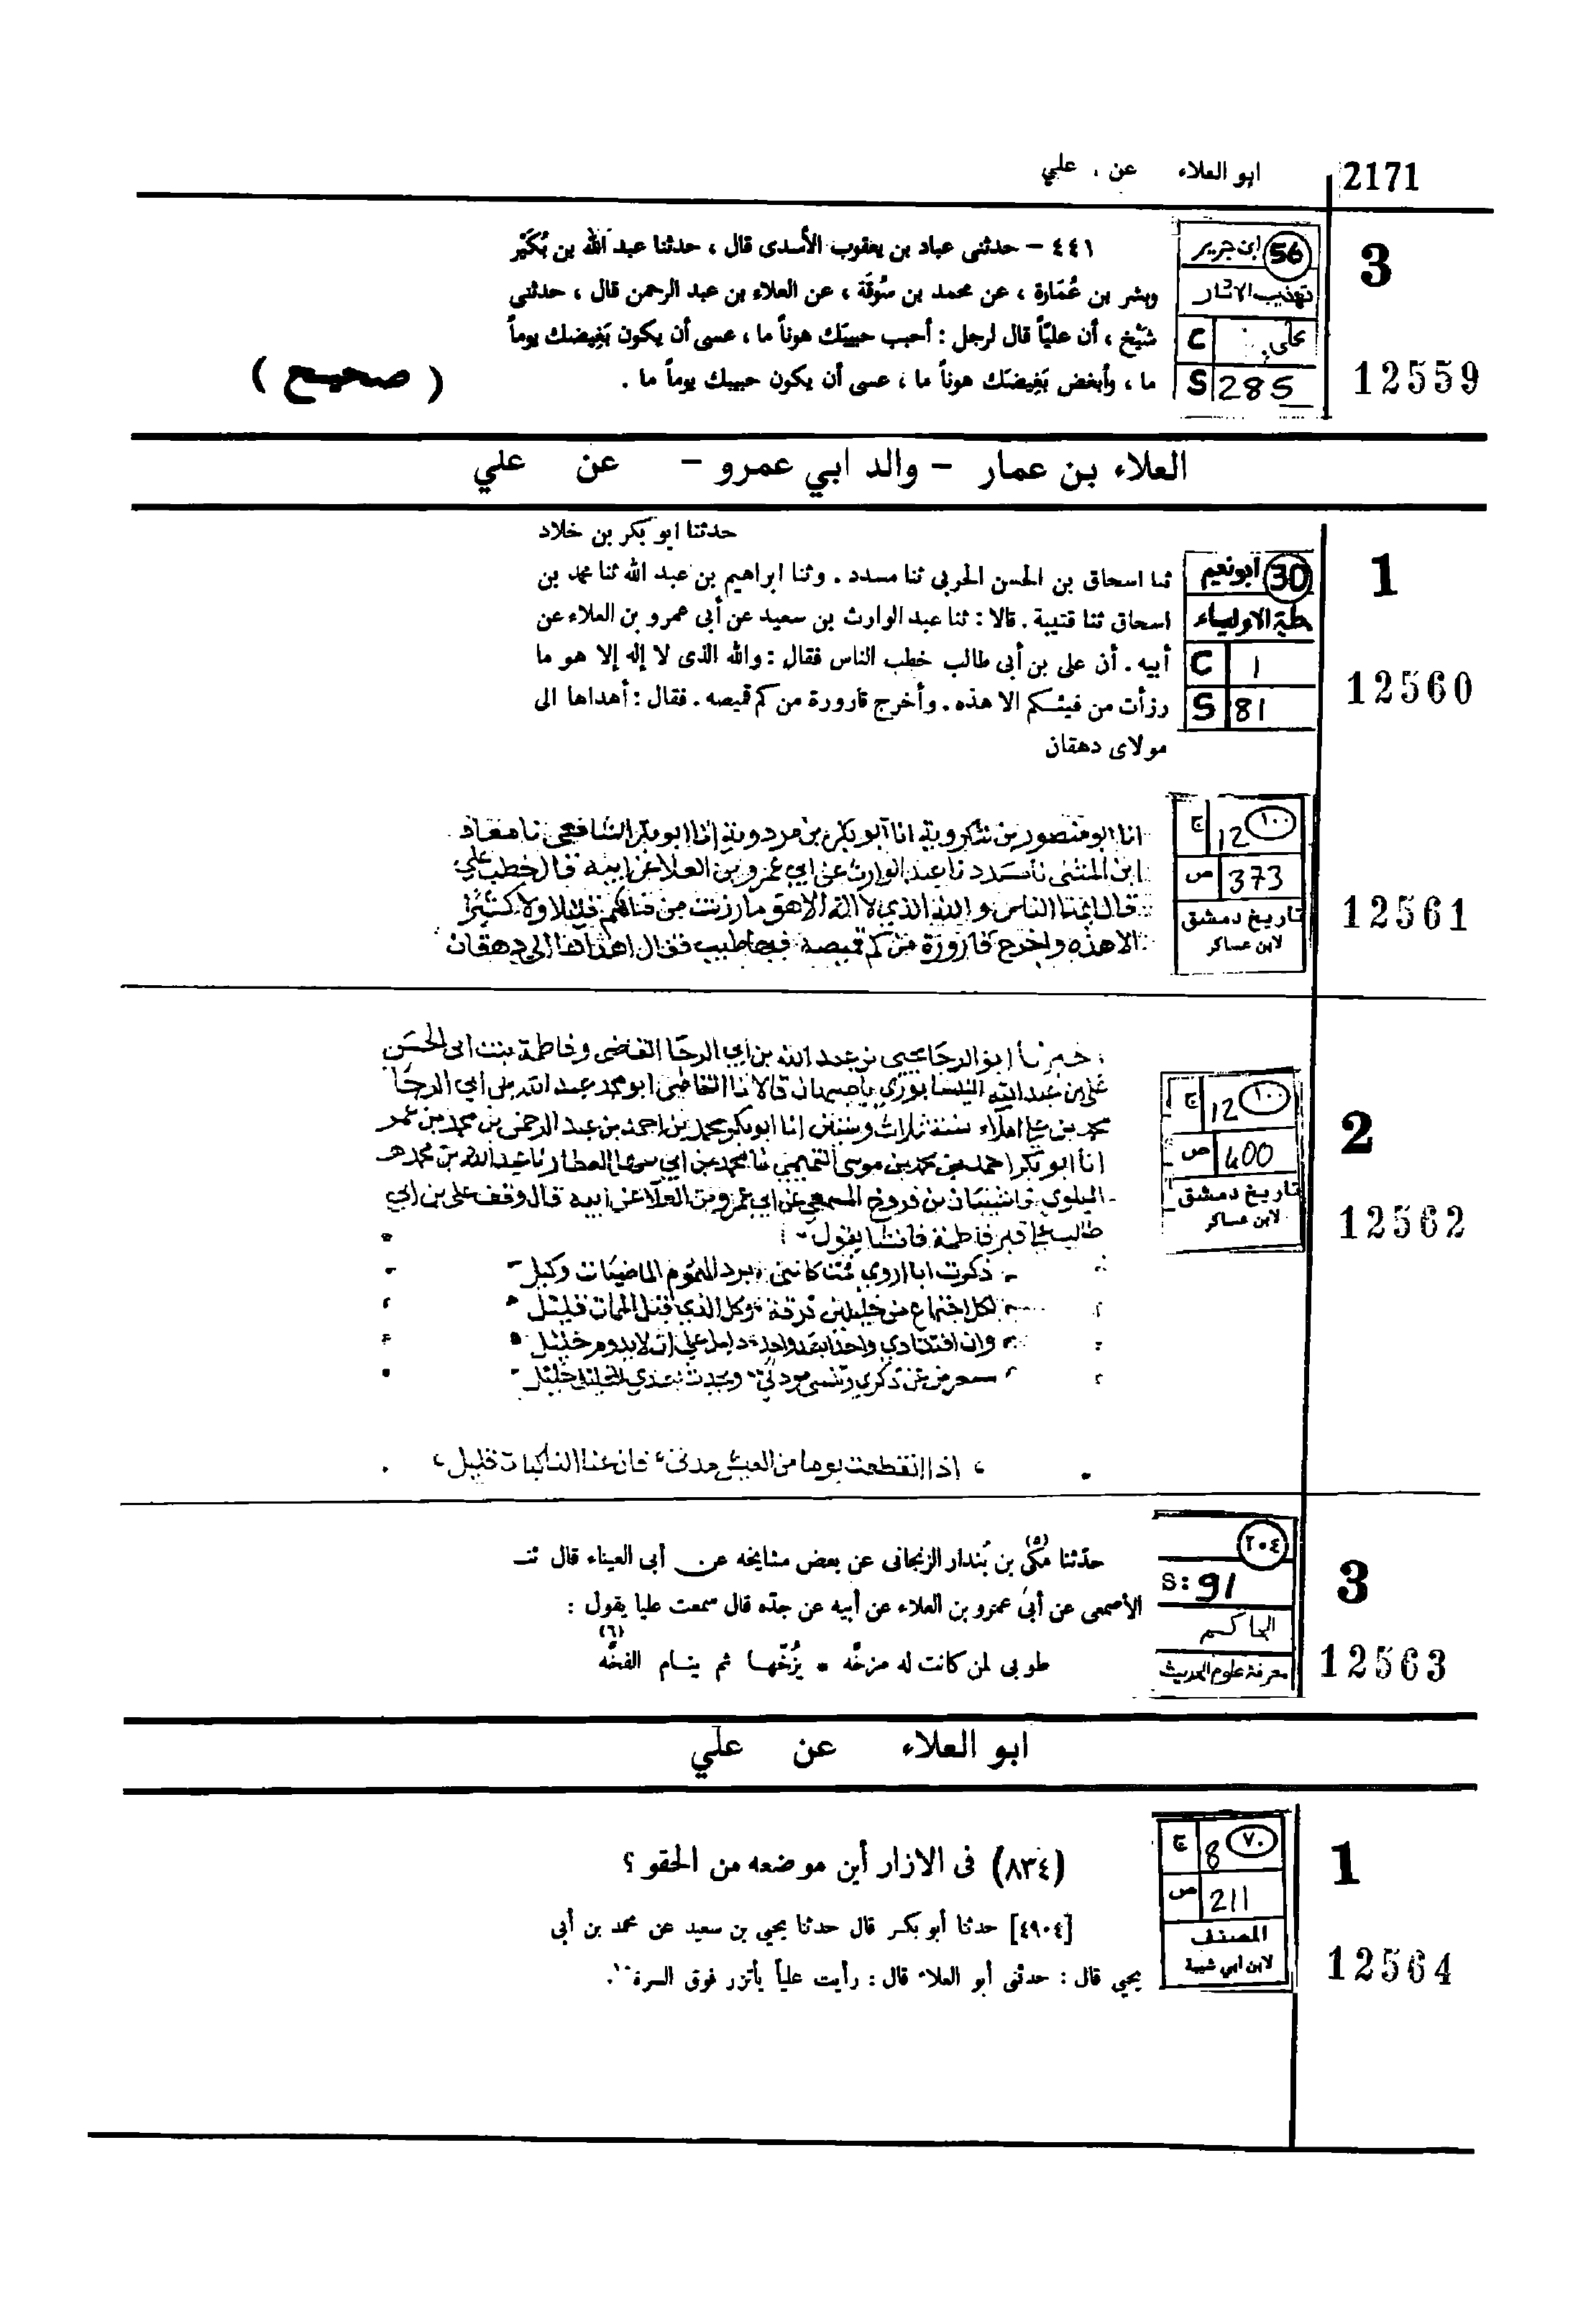 2171
ابو العلاء عن ، علي
3
56 ابن جرير
تهذيب الاثار
C علي
S 285
12559
٤٤١ – حدثنى عباد بن يعقوب الأسدى قال ، حدثنا عبد الله بن بُكَيْر
وبشر بن عُمَارة ، عن محمد بن سُوقَة ، عن العلاء بن عبد الرحمن قال ، حدثنى
شَيْخ ، أن عليّاً قال لرجل : أحبب حبيبَك هوناً ما ، عسى أن يكون بَغِيضك يوماً
ما ، وأبغض بَغِيضَك هوناً ما ، عسى أن يكون حبيبك يوماً ما .
( صحيح )
العلاء بن عمار – والد ابي عمرو – عن علي
1
30 أبونعيم
حلية الاولياء
C 1
S 81
12560
حدثنا ابو بكر بن خلاد
ثنا اسحاق بن الحسن الحربى ثنا مسدد . وثنا ابراهيم بن عبد الله ثنا محمد بن
اسحاق ثنا قتيبة . قالا : ثنا عبد الوارث بن سعيد عن أبى عمرو بن العلاء عن
أبيه . أن على بن أبى طالب خطب الناس فقال : والله الذى لا إله إلا هو ما
رزأت من فيئكم الا هذه . وأخرج قارورة من كم قميصه . فقال : أهداها الى
مولاى دهقان
١٠٠ ج 12
ص 373
تاريخ دمشق
لابن عساكر
12561
انا ابو منصور بن شكروية انا ابو بكر بن مردوية انا ابو بكر الشافعي نا معاذ
ابن المثنى نا مسدد نا عبد الوارث عن ابي عمرو بن العلا عن ابيه قال خطب علي
قال ايها الناس والله الذي لا اله الا هو ما رزئت من فيئكم قليلا ولا كثيرا
الا هذه واخرج قارورة من كم قميصه فيها طيب فقال اهداها الي دهقان
2
١٠٠ ج 12
ص 400
تاريخ دمشق
لابن عساكر
12562
خبرنا ابو الرجا يحيى بن عبد الله بن ابي الرجا القاضي وفاطمة بنت ابي الحسن
علي بن عبد الله النيسابوري باصبهان قالا انا القاضي ابو محمد عبد الله بن ابي الرجا
محمد بن علي املاء سنة ثلاث وستين انا ابو بكر محمد بن احمد بن عبد الرحمن بن محمد بن عمر
انا ابو بكر احمد بن محمد بن موسى التميمي نا محمد بن ابي سهل العطار نا عبد الله بن محمد هـ
البلوي نا شيبان بن فروخ المسمعي عن ابي عمرو بن العلا عن ابيه قال وقف علي بن ابي
طالب علي قبر فاطمة فانشا يقول
ذكرت ابا اروي فبت كانني برد الهموم الماضيات وكيل
لكل اجتماع من خليلين فرقة وكل الذي قبل الممات قليل
وان افتقادي واحدا بعد واحد دليل علي ان لا يدوم خليل
سيعرض عن ذكري وتنسى مودتي ويحدث بعدي للخليل خليل
اذا انقطعت يوما من العيش مدتي فان غنا الباكيات قليل
3
٢٠٤
S: 91
الحاكم
معرفة علوم الحديث
12563
حدّثنا مكّى (٥) بن بُندار الزنجانى عن بعض مشايخه عن أبى العيناء قال ثنـ
الأصمعى عن أبى عمرو بن العلاء عن أبيه عن جدّه قال سمعت عليا يقول :
طوبى لمن كانت له مزخَّه * يُزُخّهـا ثم ينـام الفخَّه (٦)
ابو العلاء عن علي
1
٧٠ ج 8
ص 211
المصنف
لابن أبي شيبة
12564
(٨٣٤) فى الازار أين موضعه من الحقو ؟
[٤٩٠٤] حدثنا أبو بكر قال حدثنا يحيى بن سعيد عن محمد بن أبى
يحيى قال : حدثنى أبو العلاء قال : رأيت علياً يأتزر فوق السرة .